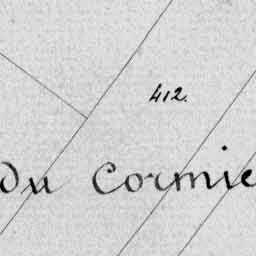 412.
du Cormie